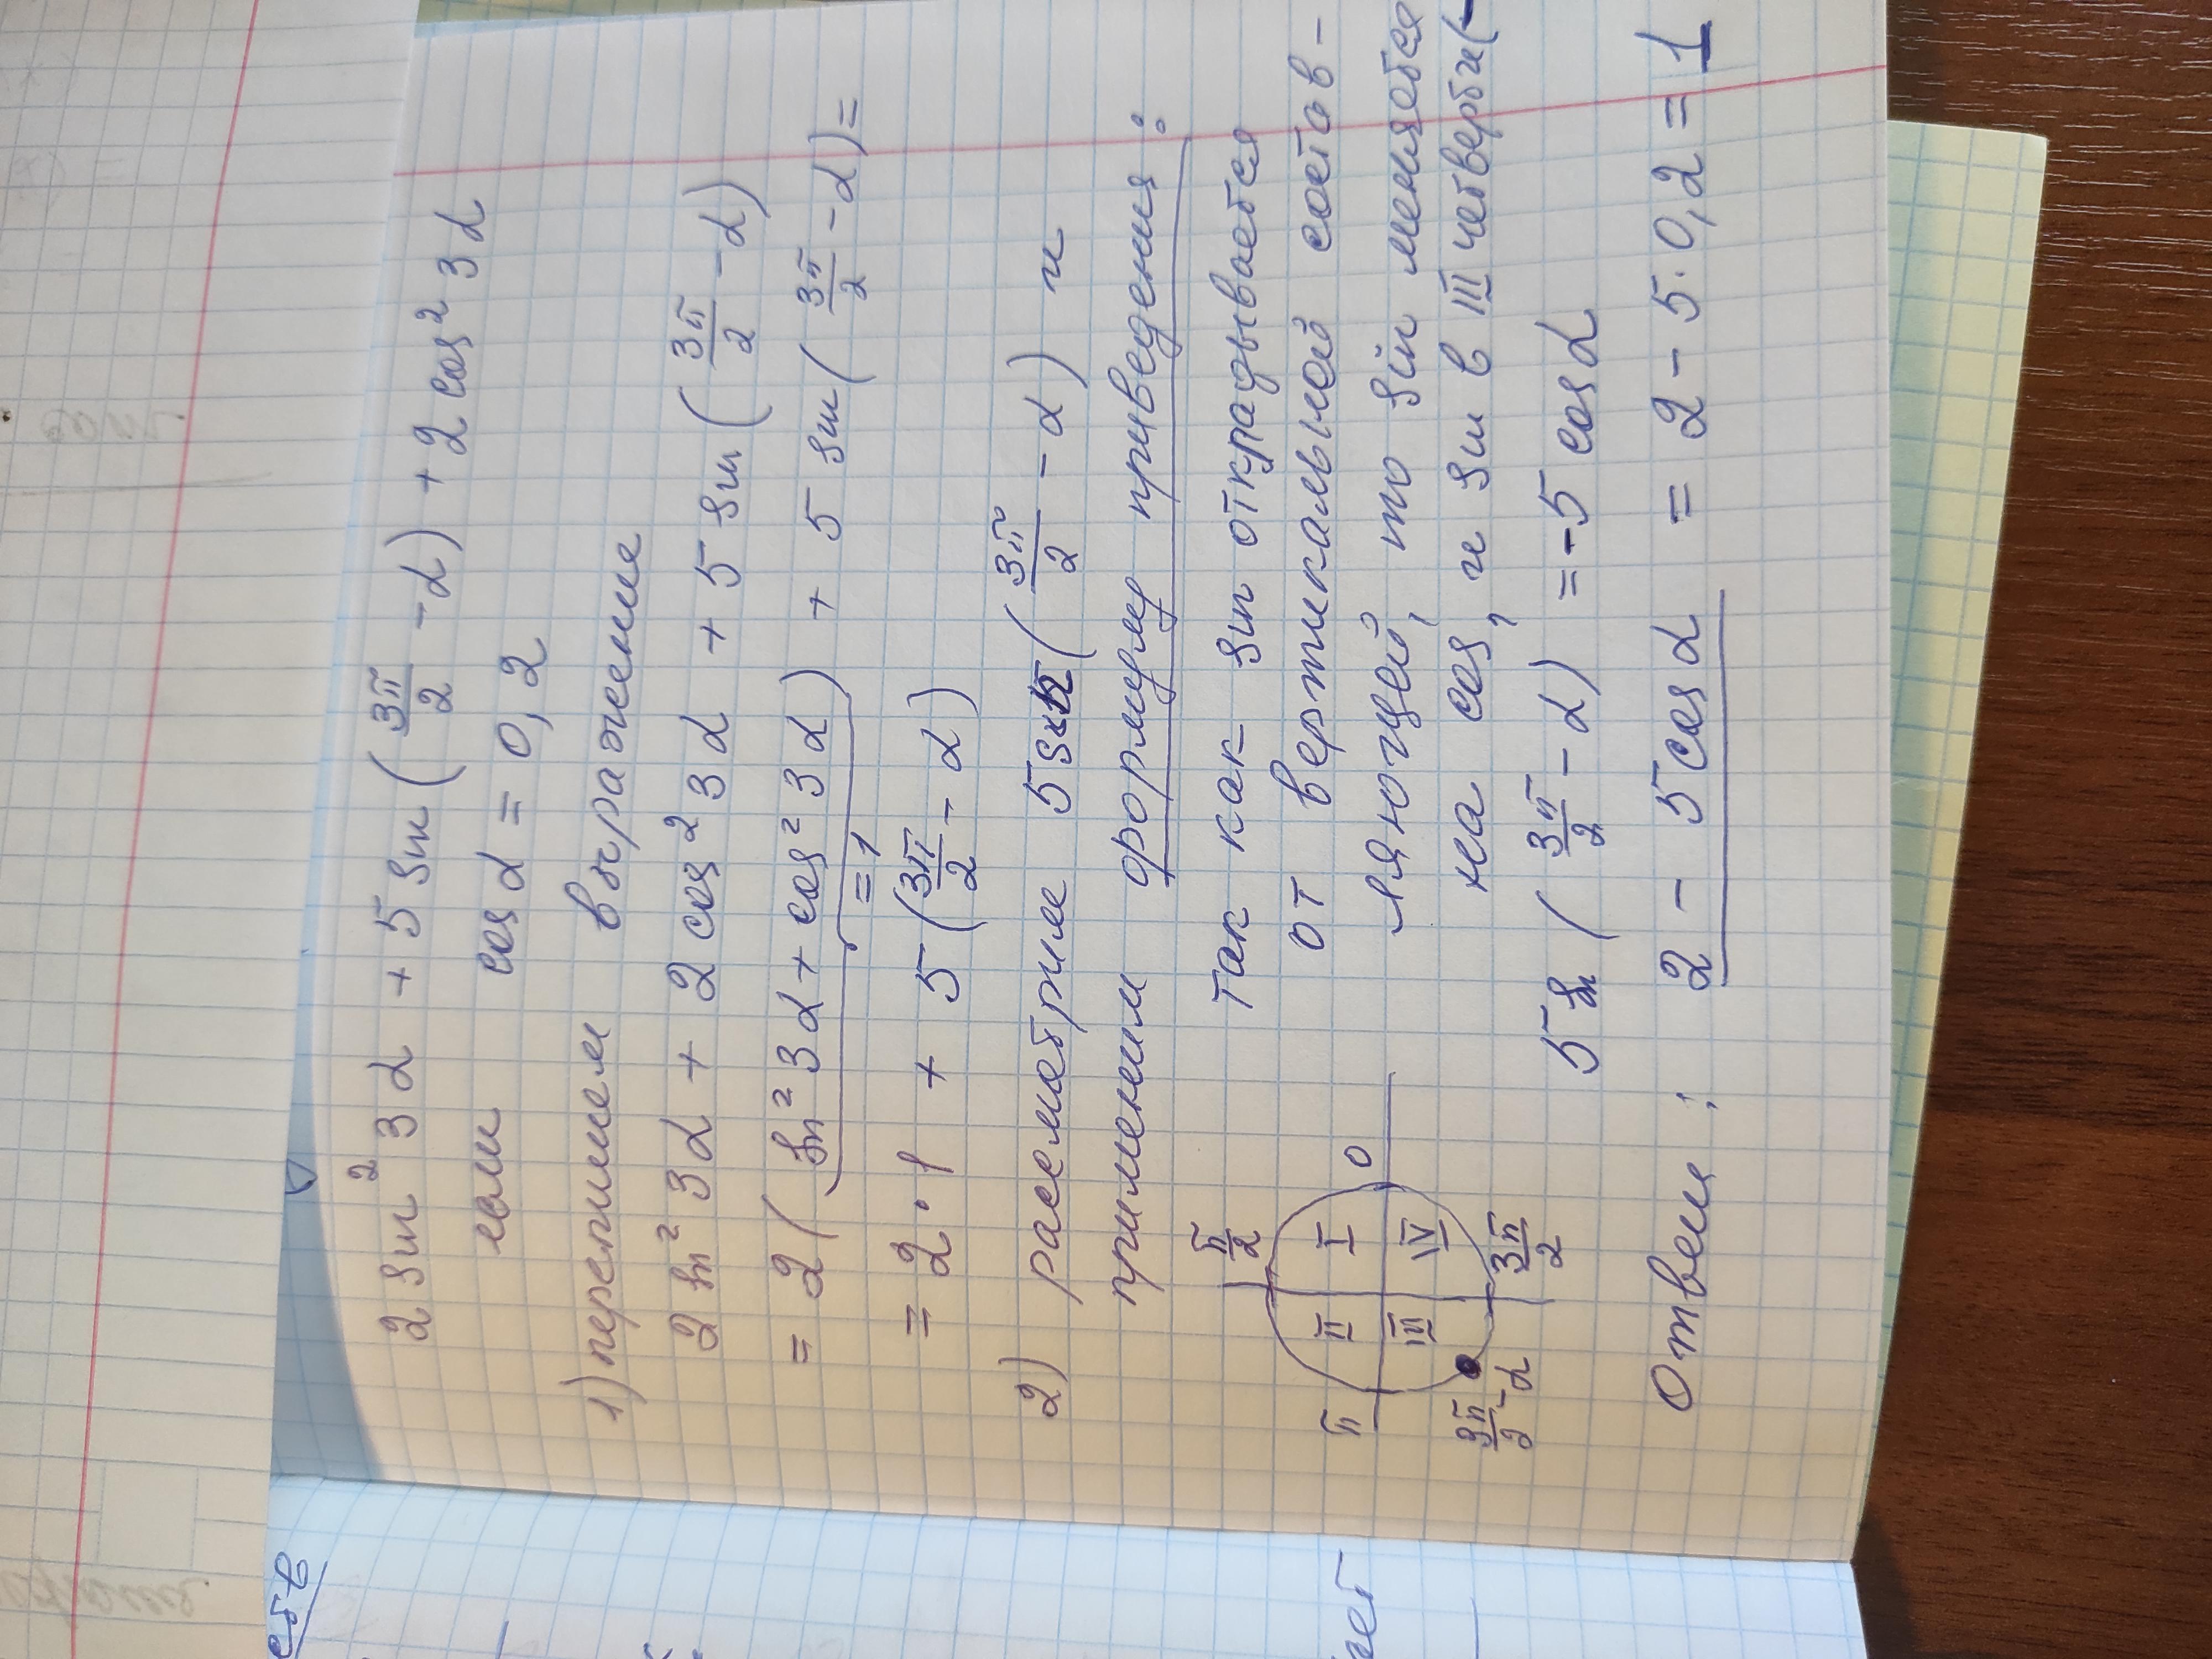 2 sin² 3α + 5 sin (3π/2 - α) + 2 cos² 3α
если cos α = 0,2
1) перепишем выражение
2 sin² 3α + 2 cos² 3α + 5 sin (3π/2 - α)
= 2 (sin² 3α + cos² 3α) + 5 sin (3π/2 - α) =
= 1
= 2 · 1 + 5 (3π/2 - α)
2) рассмотрим 5 sin (3π/2 - α) и
применим формулу приведения :
Так как sin откладывается
от вертикальной состав-
ляющей, то sin меняется
на cos, и sin в III четверти (-
π/2
0
I
II
III
IV
π
3π/2
3π/2 - α
5 sin (3π/2 - α) = -5 cos α
Ответ : 2 - 5 cos α = 2 - 5 · 0,2 = 1